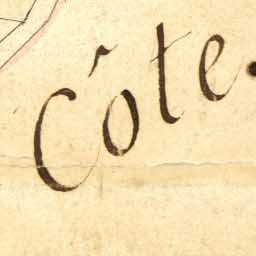 Côte.